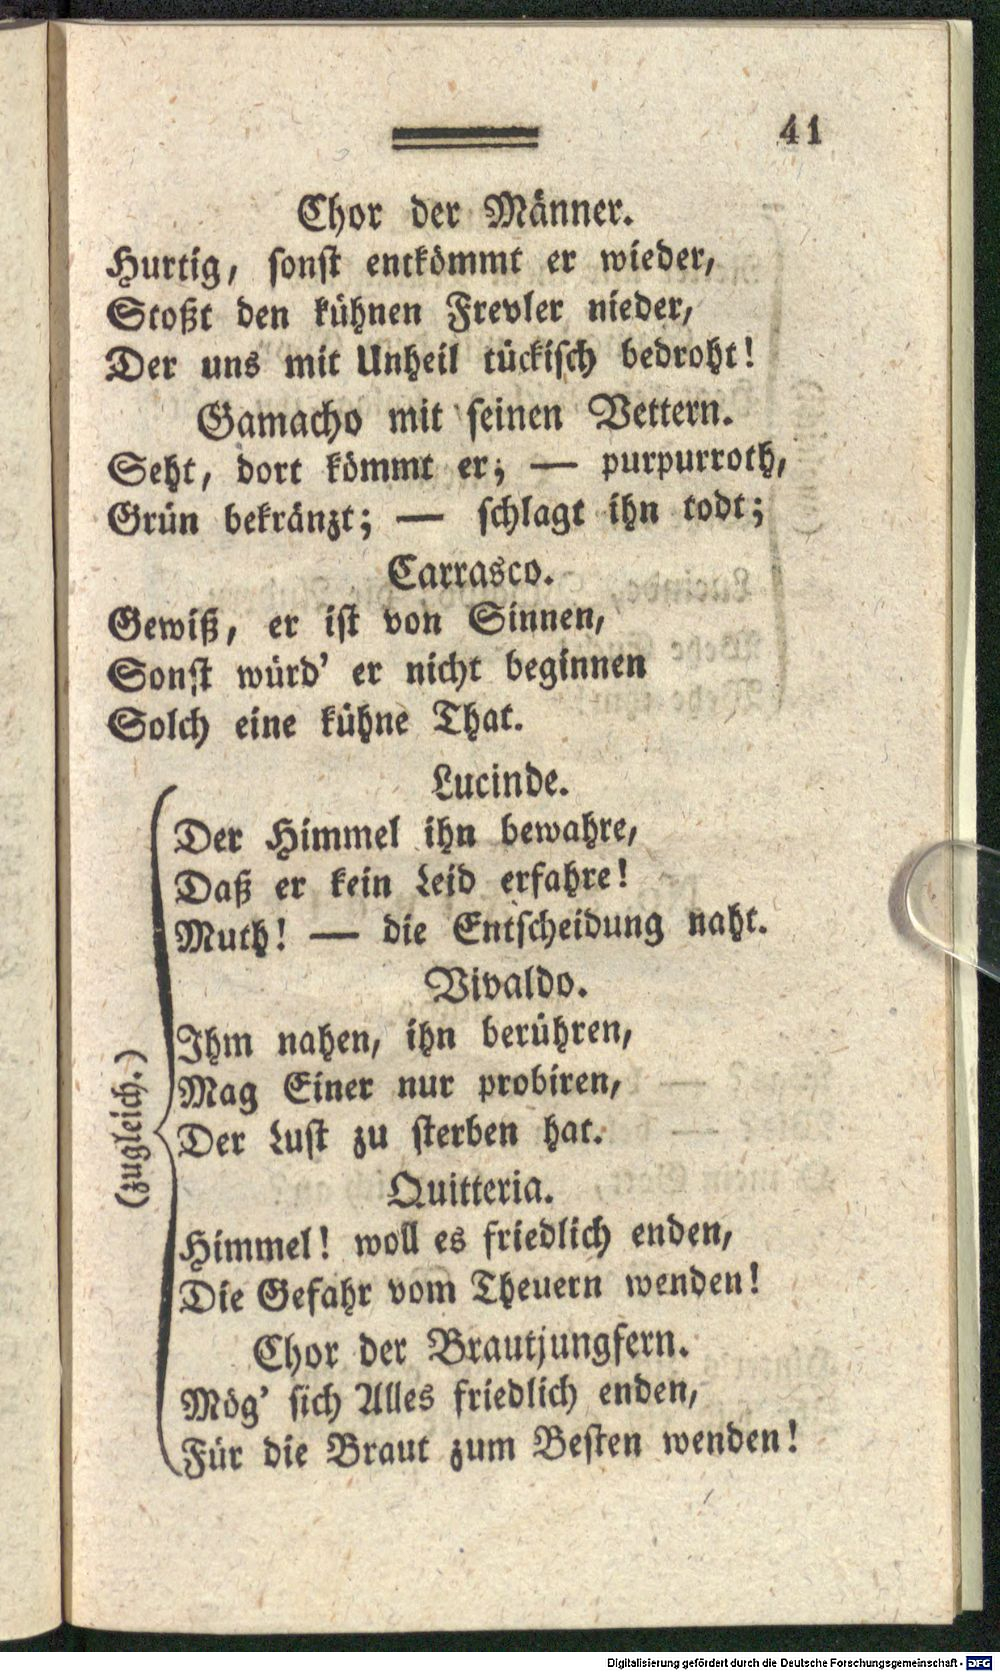 41
Chor der Männer.
Hurtig, sonst entkömmt er wieder,
Stoßt den kühnen Frevler nieder,
Der uns mit Unheil tückisch bedroht!
Gamacho mit seinen Vettern.
Seht, dort kömmt er; — purpurroth,
Grün bekränzt; — schlagt ihn todt;
Carrasco.
Gewiß, er ist von Sinnen,
Sonst würd' er nicht beginnen
Solch eine kühne That.
(zugleich.)
Lucinde.
Der Himmel ihn bewahre,
Daß er kein Leid erfahre!
Muth! — die Entscheidung naht.
Vivaldo.
Ihm nahen, ihn berühren,
Mag Einer nur probiren,
Der Lust zu sterben hat.
Quitteria.
Himmel! woll es friedlich enden,
Die Gefahr vom Theuern wenden!
Chor der Brautjungfern.
Mög' sich Alles friedlich enden,
Für die Braut zum Besten wenden!
Digitalisierung gefördert durch die Deutsche Forschungsgemeinschaft - DFG